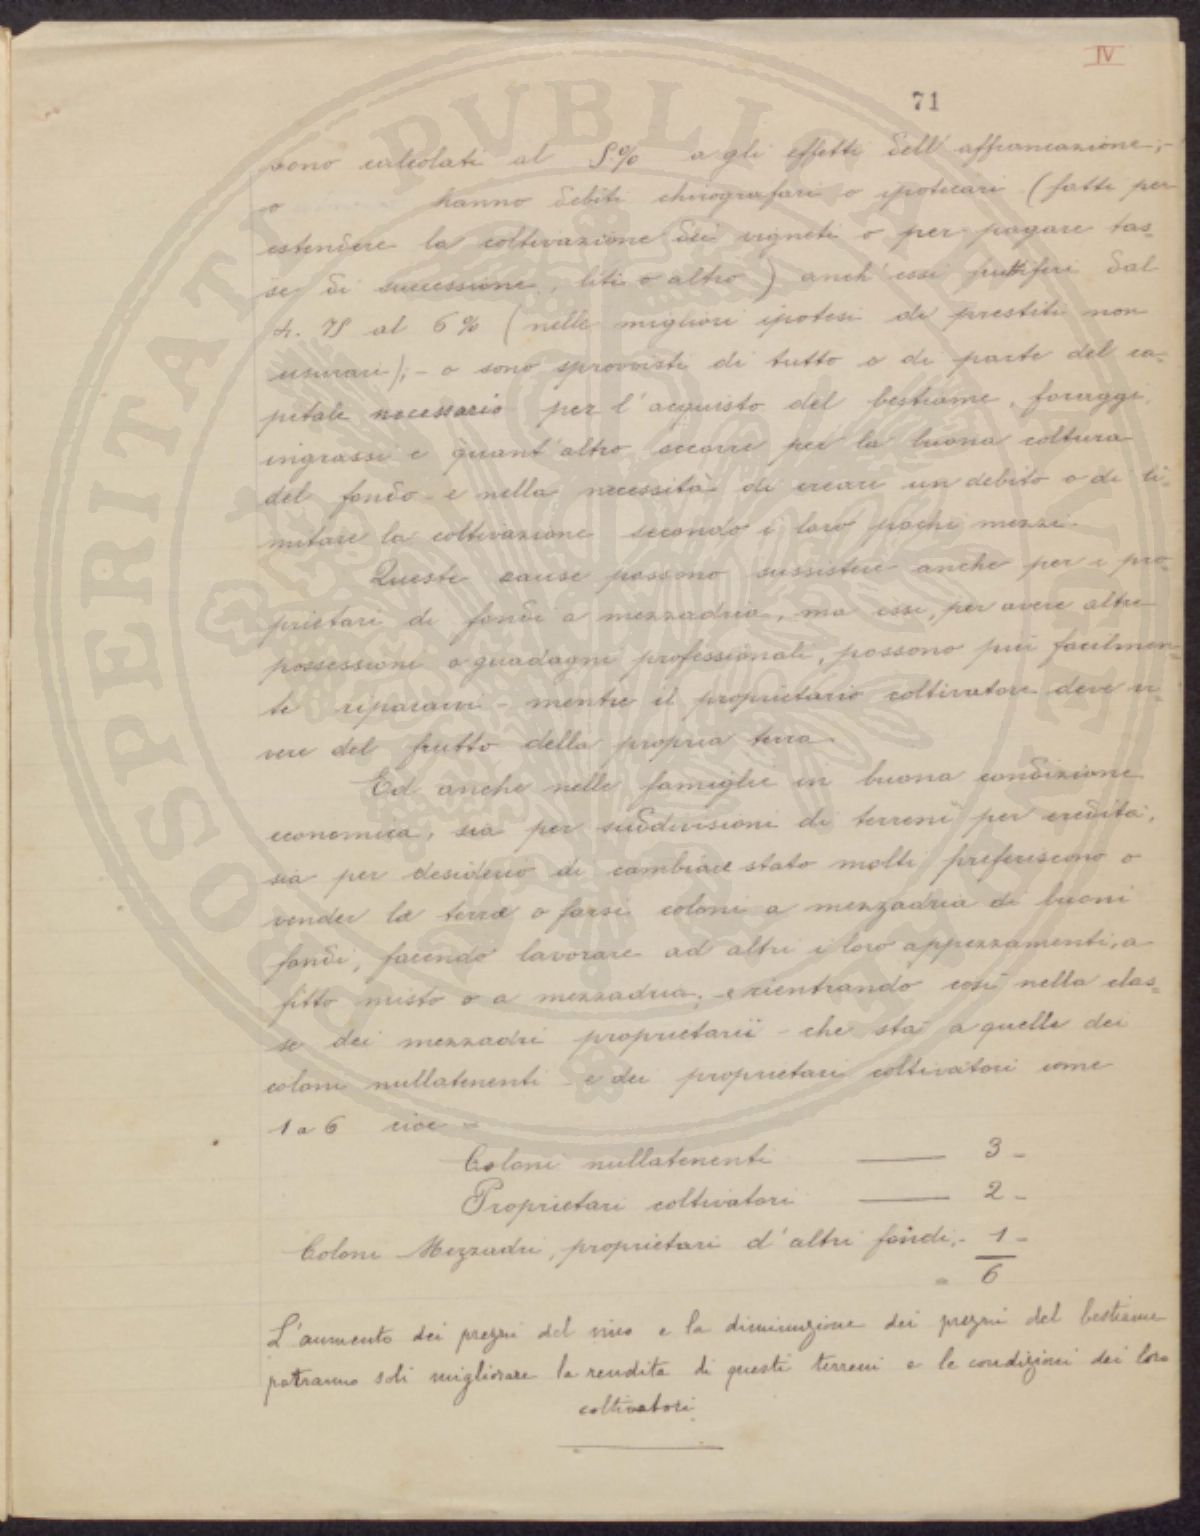 IV
71
sono calcolati al 5% agli effetti dell'affrancazione;-
o hanno debiti chirografari o ipotecari (fatti per
estendere la coltivazione dei vigneti o per pagare tas=
se di successione, liti o altro) anch'essi fruttiferi dal
4.75 al 6% (nelle migliori ipotesi di prestiti non
usurari);- o sono sprovvisti di tutto o di parte del ca=
pitale necessario per l'acquisto del bestiame, foraggi,
ingrassi e quant'altro occorre per la buona coltura
del fondo - e nella necessità di creare un debito o di li=
mitare la coltivazione secondo i loro pochi mezzi.
Queste cause possono sussistere anche per i pro=
prietari di fondi a mezzadria, ma essi, per avere altre
possessioni o guadagni professionali, possono più facilmen=
te ripararvi - mentre il proprietario coltivatore deve vi=
vere del frutto della propria terra.
Ed anche nelle famiglie in buona condizione
economica, sia per suddivisioni di terreni per eredità,
sia per desiderio di cambiare stato molti preferiscono o
vender le terre o farsi coloni a mezzadria di buoni
fondi, facendo lavorare ad altri i loro appezzamenti, a
fitto misto o a mezzadria; - e rientrando così nella clas=
se dei mezzadri proprietarii - che sta a quelle dei
coloni nullatenenti e dei proprietari coltivatori come
1 a 6 cioè =
Coloni nullatenenti —— 3 -
Proprietari coltivatori —— 2 -
Coloni Mezzadri, proprietari d'altri fondi.- 1 -
= 6
L'aumento dei prezzi del vino e la diminuzione dei prezzi del bestiame
potranno soli migliorare la rendita di questi terreni e le condizioni dei loro
coltivatori.
PROSPERITATI PVBLICAE